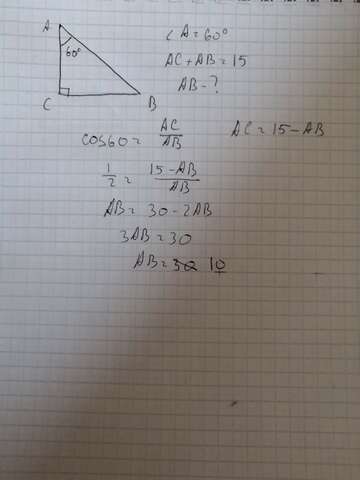 A
60°
C
B
∠A=60°
AC+AB=15
AB-?
cos60= AC/AB
AC=15-AB
1/2 = 15-AB/AB
AB= 30-2AB
3AB=30
AB= 10